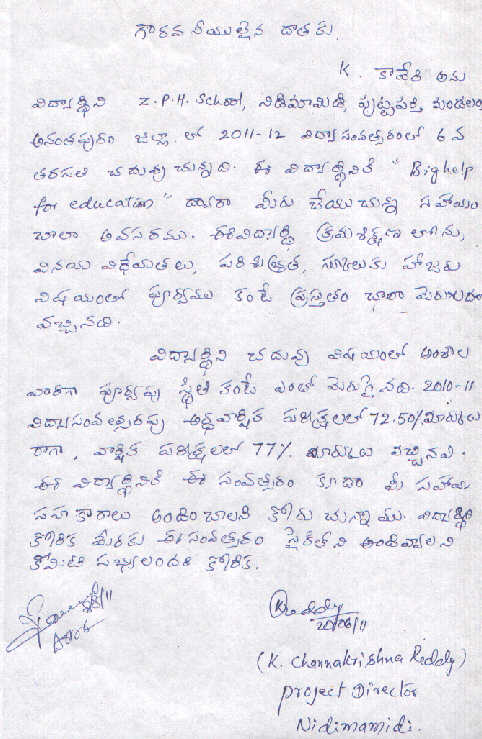 గౌరవనీయులైన దాతకు,
K. కావేరి అను
విద్యార్థిని Z.P.H. School, నిడిమామిడి, పుట్టపర్తి మండలం,
అనంతపురం జిల్లా లో 2011-12 విద్యాసంవత్సరంలో 6 వ
తరగతి చదువు చున్నది. ఈ విద్యార్థినికి "Bighelp
for education" ద్వారా మీరు చేయుచున్న సహాయం
చాలా అవసరము. ఈవిద్యార్థి క్రమశిక్షణ లోను,
వినయ విధేయతలు, పరిశుభ్రత, స్కూలుకు హాజరు
విషయంలో పూర్వము కంటే ప్రస్తుతం చాలా మెరుగుదల
వచ్చినది.
విద్యార్థిని చదువు విషయంలో అంశాల
వారిగా పూర్వపు స్థితి కంటే ఎంతో మెరుగైనది. 2010-11
విద్యాసంవత్సరపు అర్థవార్షిక పరీక్షలలో 72.50% మార్కులు
రాగా, వార్షిక పరీక్షలలో 77% మార్కులు వచ్చినవి.
ఈ విద్యార్థినికి ఈ సంవత్సరం కూడా మీ సహాయ
సహకారాలు అందించాలని కోరు చున్నాము. విద్యార్థిని
కోరిక మేరకు ఈ సంవత్సరం సైకిల్ ని ఇవ్వాలని
కోమిటి సభ్యులందరి కోరిక.
K Reddy
20/06/11
(K. Chennakrishna Reddy)
project Director
Nidimamidi.